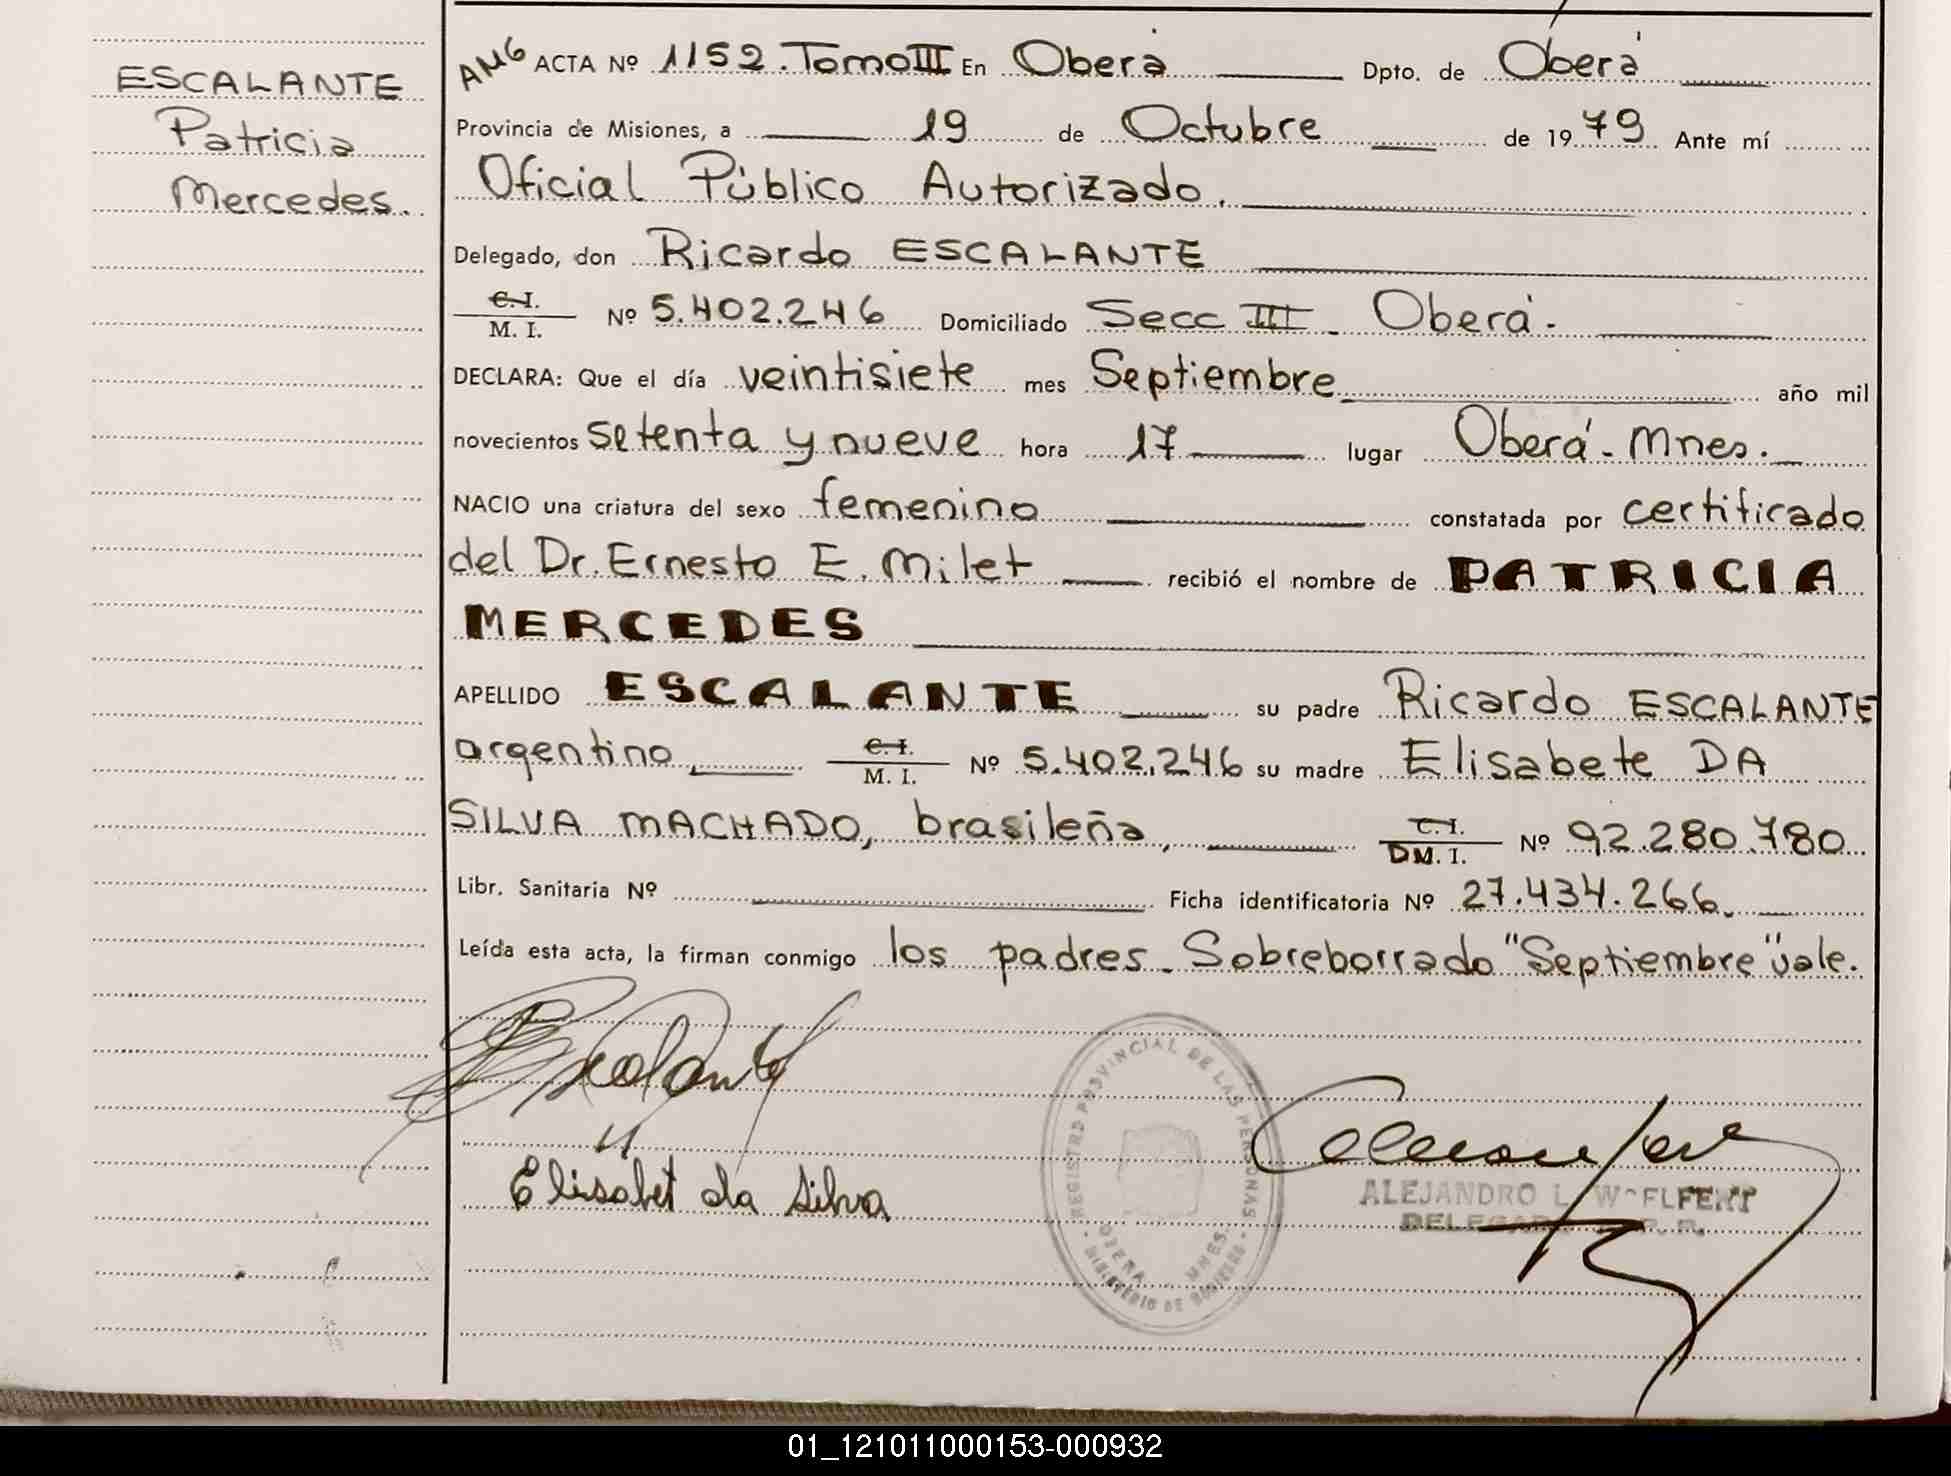 ESCALANTE
Patricia
Mercedes.
AMG ACTA Nº 1152. Tomo III En Oberá Dpto. de Oberá
Provincia de Misiones, a 19 de Octubre de 1979 Ante mí
Oficial Público Autorizado.
Delegado, don Ricardo ESCALANTE
C.I.
M. I. Nº 5.402.246 Domiciliado Secc III - Oberá.-
DECLARA: Que el día veintisiete mes Septiembre año mil
novecientos setenta y nueve hora 17 lugar Oberá - Mnes.
NACIO una criatura del sexo femenino constatada por certificado
del Dr. Ernesto E. Milet recibió el nombre de PATRICIA
MERCEDES
APELLIDO ESCALANTE su padre Ricardo ESCALANTE
argentino, C.I.
M. I. Nº 5.402.246 su madre Elisabete DA
SILVA MACHADO, brasileña, C.I.
DM. I. Nº 92.280.780
Libr. Sanitaria Nº Ficha identificatoria Nº 27.434.266.
Leída esta acta, la firman conmigo los padres. Sobreborrado "Septiembre" vale.
Escalante
Elisabet da Silva
REGISTRO PROVINCIAL DE LAS PERSONAS
OBERA MNES.
MINISTERIO DE GOBIERNO
ALEJANDRO L.
01_121011000153-000932